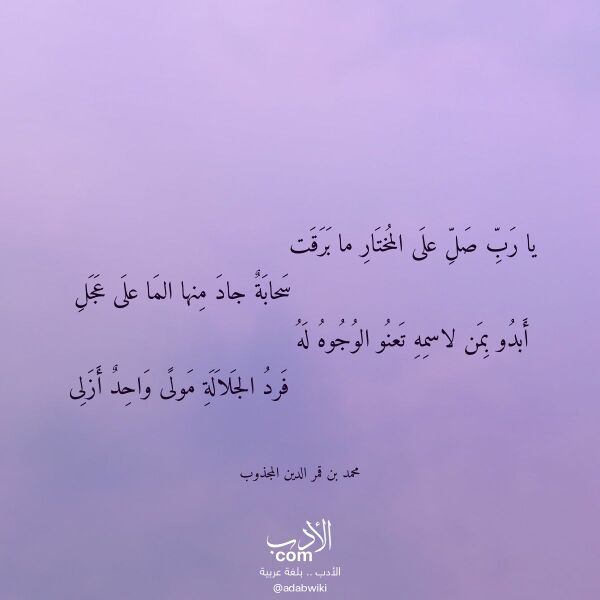 يا رَبِّ صَلِّ علَى المُختَارِ ما بَرَقَت
سَحابَةٌ جادَ مِنها المَا علَى عَجَلِ
أَبدُو بِمَن لاسمِهِ تَعنُو الوُجُوهُ لَهُ
فَردُ الجَلاَلَةِ مَولًى وَاحِدٌ أَزَلِى
محمد بن قمر الدين المجذوب
الأدب
com
الأدب .. بلغة عربية
@adabwiki